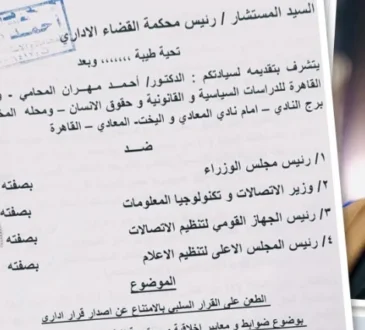 السيد المستشار / رئيس محكمة القضاء الاداري
تحية طيبة ،،،،،،، وبعد
يتشرف بتقديمه لسيادتكم : الدكتور/ أحمد مهران المحامي -
القاهرة للدراسات السياسية و القانونية و حقوق الانسان – ومحله
برج النادي – امام نادي المعادي و اليخت- المعادي – القاهرة
ضد
١/ رئيس مجلس الوزراء بصفته
٢/ وزير الاتصالات و تكنولوجيا المعلومات بصفته
٣/ رئيس الجهاز القومي لتنظيم الاتصالات بصفته
٤/ رئيس المجلس الاعلى لتنظيم الاعلام بصفته
الموضوع
الطعن على القرار السلبي بالامتناع عن اصدار قرار اداري
بوضوع ضوابط و معايير اخلاقية